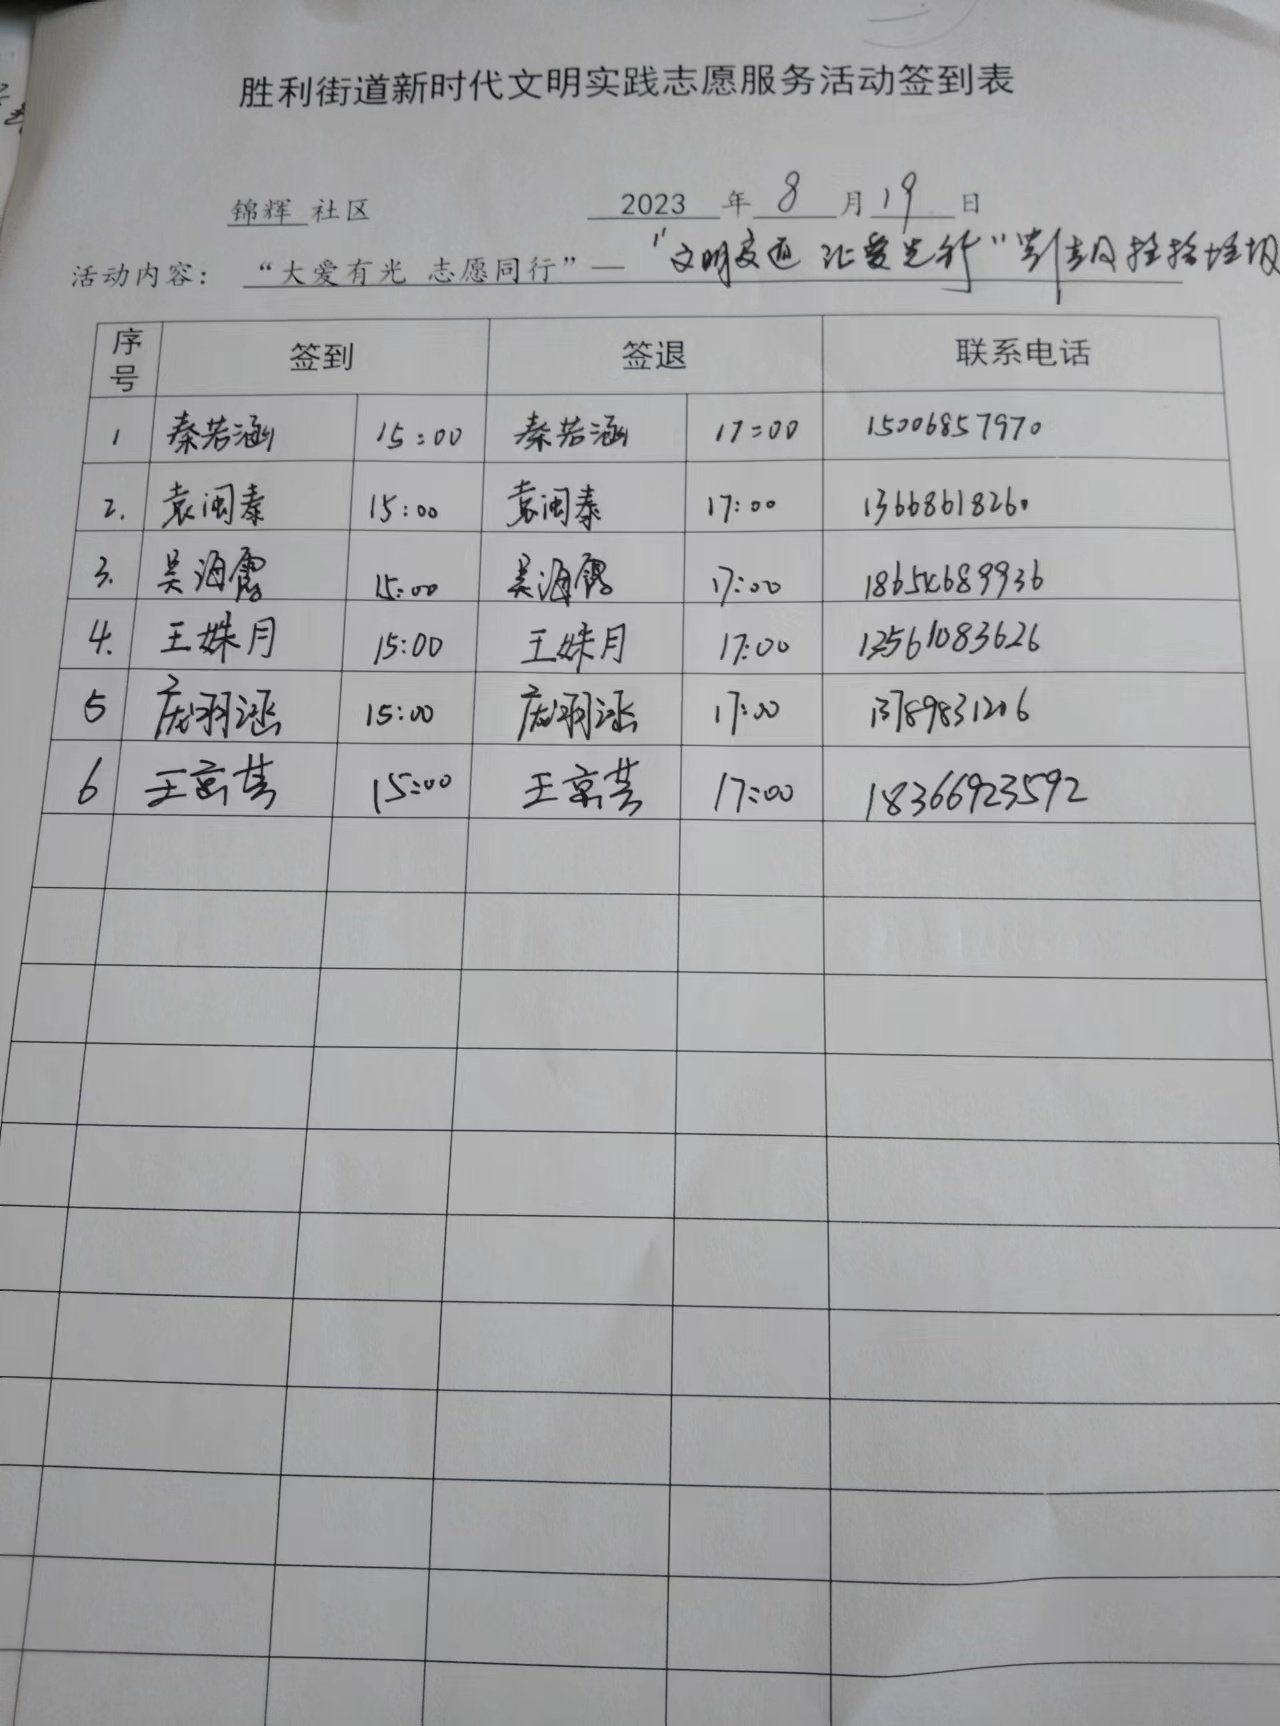 胜利街道新时代文明实践志愿服务活动签到表
锦辉 社区 2023 年 8 月 19 日
活动内容： “大爱有光 志愿同行”— “文明交通 让爱先行” 捡拾垃圾
序号 签到 签退 联系电话
1 秦若涵 15:00 秦若涵 17:00 15006857970
2. 袁闽泰 15:00 袁闽泰 17:00 13668618260
3. 吴海霞 15:00 吴海霞 17:00
4. 王姝月 15:00 王姝月 17:00 13561083626
5 庞羽涵 15:00 庞羽涵 17:00 13789831206
6 王京芸 15:00 王京芸 17:00 18366923592